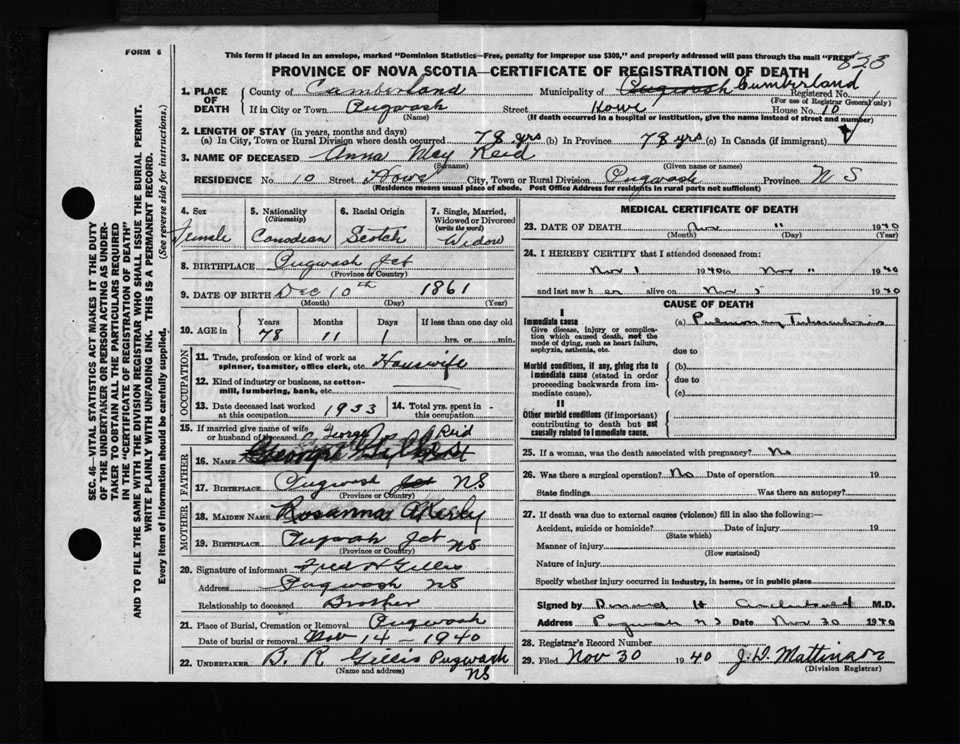 FORM 6
This form if placed in an envelope, marked "Dominion Statistics—Free, penalty for improper use $300," and properly addressed will pass through the mail "FREE"
PROVINCE OF NOVA SCOTIA—CERTIFICATE OF REGISTRATION OF DEATH 823
1. PLACE OF DEATH County of Cumberland Municipality of Cumberland Registered No.
(For use of Registrar General only)
If in City or Town Pugwash Street Howe House No. 10
(Name) (If death occurred in a hospital or institution, give the name instead of street and number)
2. LENGTH OF STAY (in years, months and days)
(a) In City, Town or Rural Division where death occurred 78 yrs (b) In Province 78 yrs (c) In Canada (if immigrant)
3. NAME OF DECEASED Anna May Reid
(Surname) (Given name or names)
RESIDENCE No. 10 Street Howe City, Town or Rural Division Pugwash Province N S
(Residence means usual place of abode. Post Office Address for residents in rural parts not sufficient)
4. Sex Female
5. Nationality (Citizenship) Canadian
6. Racial Origin Scotch
7. Single, Married, Widowed or Divorced (write the word) Widow
8. BIRTHPLACE Pugwash Jct
(Province or Country)
9. DATE OF BIRTH Dec 10th 1861
(Month) (Day) (Year)
10. AGE in Years 78 Months 11 Days 1 If less than one day old hrs. or min.
OCCUPATION
11. Trade, profession or kind of work as spinner, teamster, office clerk, etc. Housewife
12. Kind of industry or business, as cotton-mill, lumbering, bank, etc.
13. Date deceased last worked at this occupation 1933
14. Total yrs. spent in this occupation -
15. If married give name of wife or husband of deceased George Reid
FATHER
16. NAME
17. BIRTHPLACE Pugwash Jct NS
(Province or Country)
MOTHER
18. MAIDEN NAME Rosanna
19. BIRTHPLACE Pugwash Jct NS
(Province or Country)
20. Signature of informant Fred H Gillis
Address Pugwash NS
Relationship to deceased Brother
21. Place of Burial, Cremation or Removal Pugwash
Date of burial or removal Nov 14 - 1940
22. UNDERTAKER B. R Gillis Pugwash NS
(Name and address)
MEDICAL CERTIFICATE OF DEATH
23. DATE OF DEATH Nov 11 1940
(Month) (Day) (Year)
24. I HEREBY CERTIFY that I attended deceased from:
Nov 1 1940 to Nov 11 1940
and last saw her alive on Nov 5 1940
CAUSE OF DEATH
I
Immediate cause (a) Pulmonary Tuberculosis
Give disease, injury or complication which caused death, not the mode of dying, such as heart failure, asphyxia, asthenia, etc.
due to
Morbid conditions, if any, giving rise to immediate cause (stated in order proceeding backwards from immediate cause).
(b)
due to
(c)
II
Other morbid conditions (if important) contributing to death but not causally related to immediate cause.
25. If a woman, was the death associated with pregnancy? No
26. Was there a surgical operation? No Date of operation 19
State findings Was there an autopsy?
27. If death was due to external causes (violence) fill in also the following:—
Accident, suicide or homicide? Date of injury 19
(State which)
Manner of injury
(How sustained)
Nature of injury
Specify whether injury occurred in industry, in home, or in public place
Signed by M.D.
Address Pugwash NS Date Nov 30 1940
28. Registrar's Record Number
29. Filed Nov 30 1940 J. D. Mattinson
(Division Registrar)
SEC. 46—VITAL STATISTICS ACT MAKES IT THE DUTY
OF THE UNDERTAKER OR PERSON ACTING AS UNDERTAKER
TO OBTAIN ALL THE PARTICULARS REQUIRED
IN THE "CERTIFICATE OF REGISTRATION OF DEATH"
AND TO FILE THE SAME WITH THE DIVISION REGISTRAR WHO SHALL ISSUE THE BURIAL PERMIT.
WRITE PLAINLY WITH UNFADING INK. THIS IS A PERMANENT RECORD.
Every item of information should be carefully supplied. (See reverse side for instructions.)